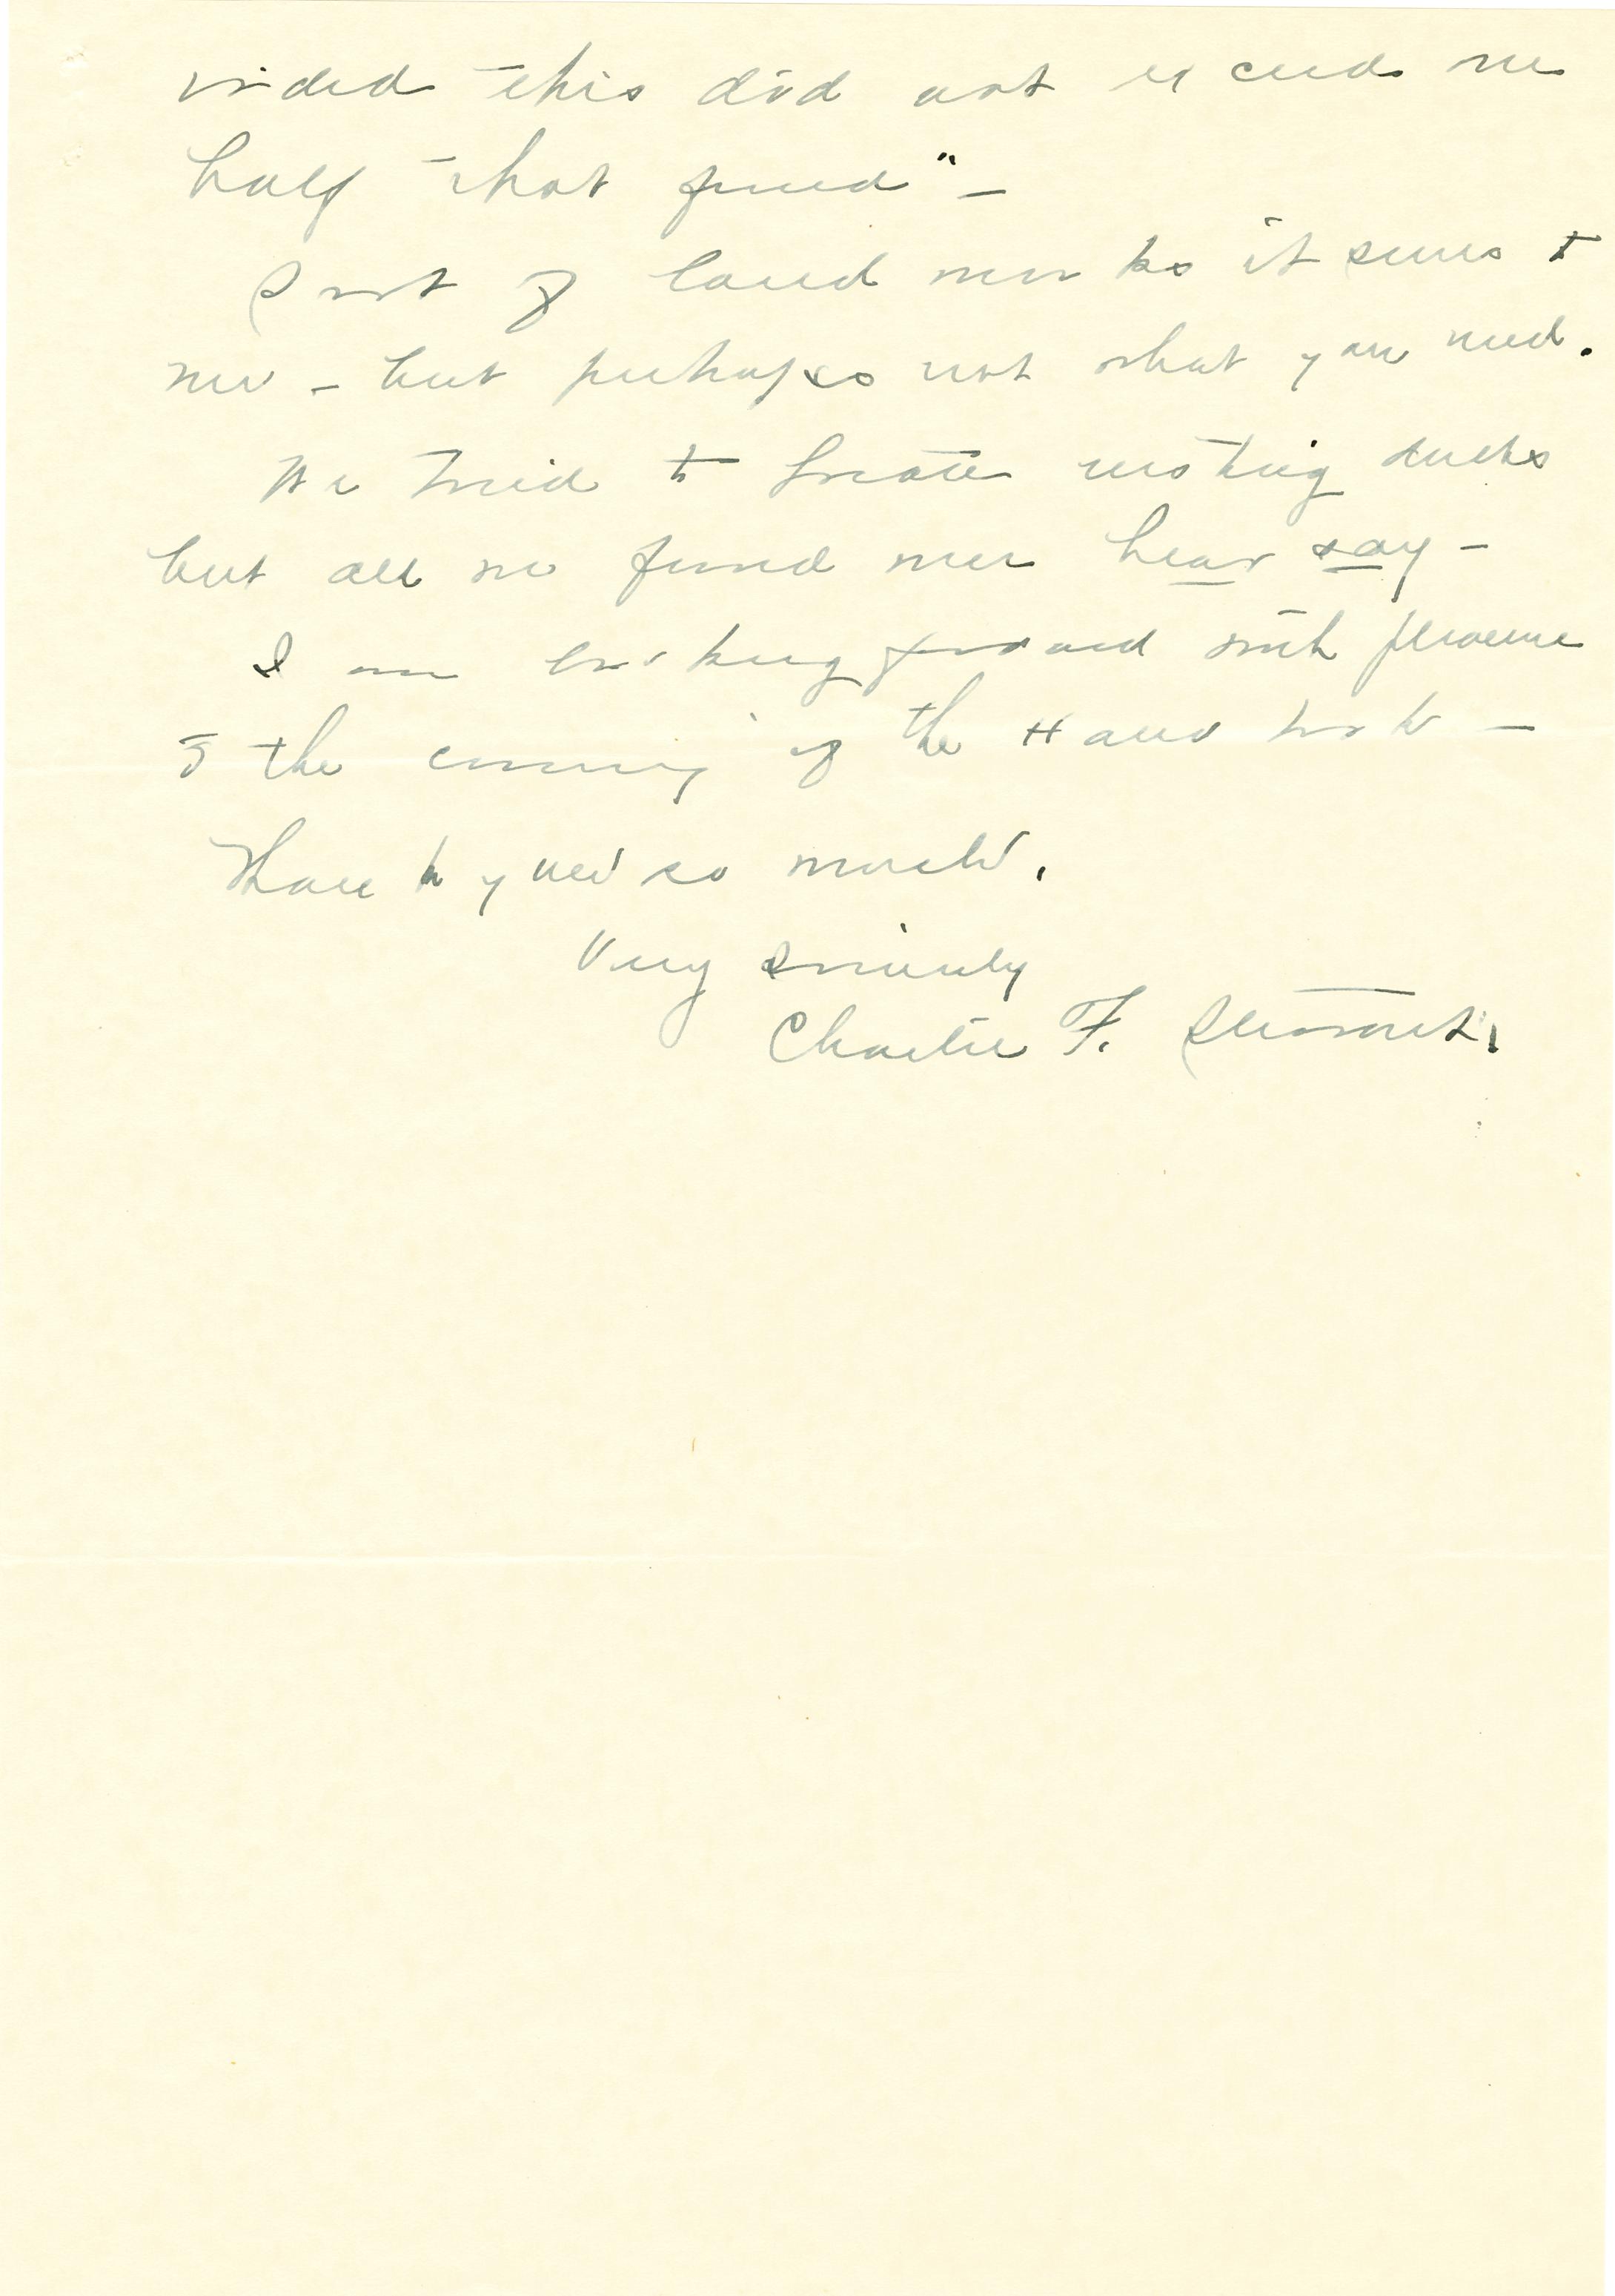 vided this did not exceed one
half that fund" -
Sort of land marks it seems to
me - but perhaps not what you need.
We tried to locate nesting ducks
but all we found was hear say -
I am looking forward with pleasure
to the coming of the Hand book -
Thank you so much.
Very sincerely
F. Stewart.